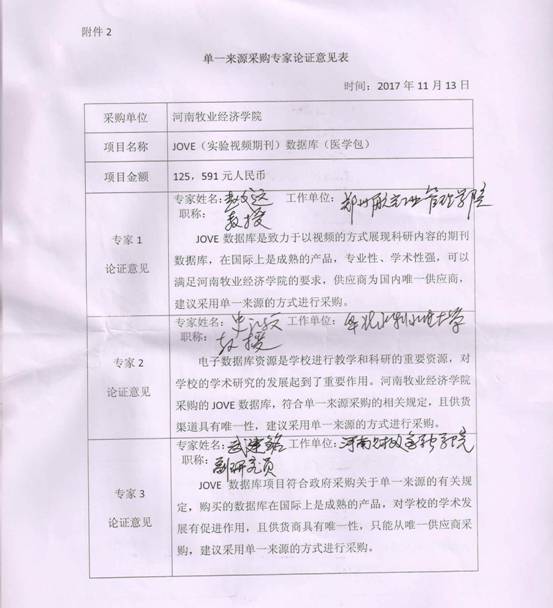 附件 2
单一来源采购专家论证意见表
时间：2017 年 11 月 13 日
采购单位 河南牧业经济学院
项目名称 JOVE（实验视频期刊）数据库（医学包）
项目金额 125，591 元人民币
专家 1
论证意见
专家姓名： 工作单位：郑州航空工业管理学院
职称：教授
JOVE 数据库是致力于以视频的方式展现科研内容的期刊
数据库，在国际上是成熟的产品，专业性、学术性强，可以
满足河南牧业经济学院的要求，供应商为国内唯一供应商，
建议采用单一来源的方式进行采购。
专家 2
论证意见
专家姓名： 工作单位：华北水利水电大学
职称：教授
电子数据库资源是学校进行教学和科研的重要资源，对
学校的学术研究的发展起到了重要作用。河南牧业经济学院
采购的 JOVE 数据库，符合单一来源采购的相关规定，且供货
渠道具有唯一性，建议采用单一来源的方式进行采购。
专家 3
论证意见
专家姓名： 工作单位：河南财政金融学院
职称：副研究员
JOVE 数据库项目符合政府采购关于单一来源的有关规
定，购买的数据库在国际上是成熟的产品，对学校的学术发
展有促进作用，且供货商具有唯一性，只能从唯一供应商采
购，建议采用单一来源的方式进行采购。